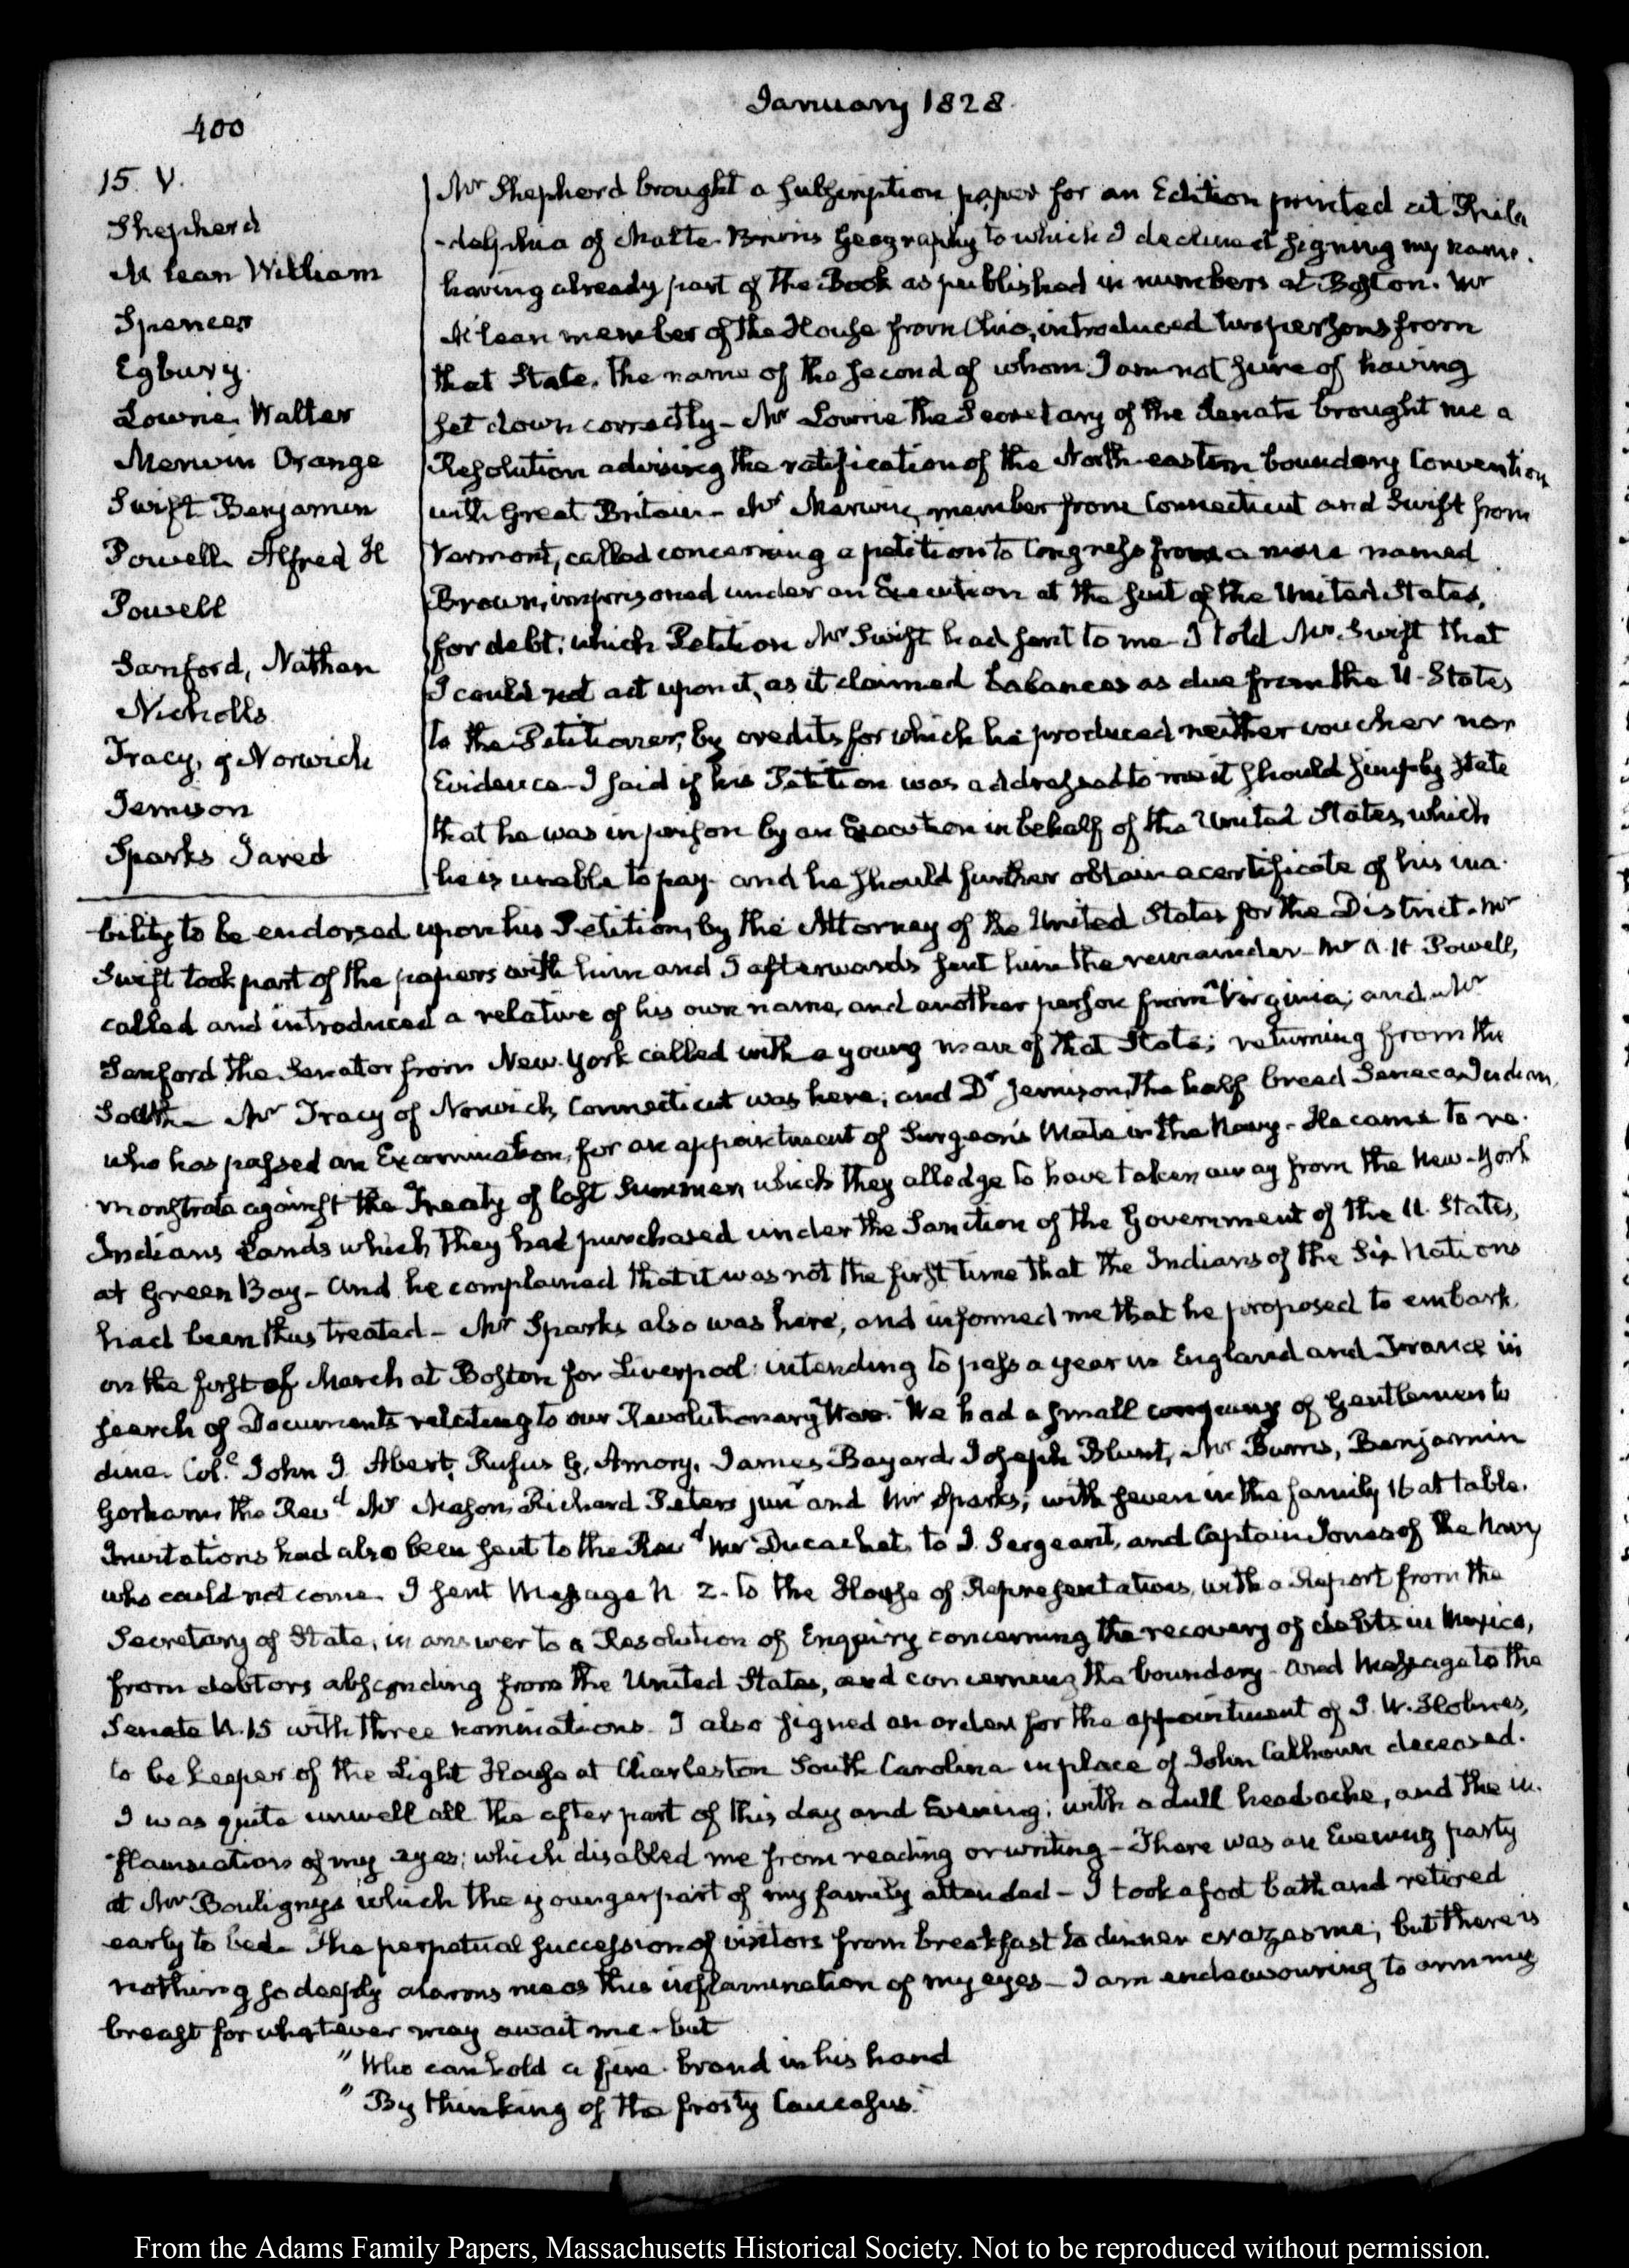 January 1828.
400
15. V.
Shepherd
McLean William
Spencer
Egbury.
Lowrie Walter
Merwin Orange
Swift Benjamin
Powell Alfred H
Powell
Sanford, Nathan
Nicholls
Tracy, of Norwich
Jemison
Sparks Jared
Mr Shepherd brought a subscription paper for an Edition printed at Phila
-delphia of Malte-Brun's Geography to which I declined signing my name.
having already part of the Book as published in numbers at Boston. Mr
McLean member of the House from Ohio, introduced two persons from
that State. The name of the second of whom I am not sure of having
set down correctly – Mr Lowrie the Secretary of the Senate brought me a
Resolution advising the ratification of the North-eastern boundary Convention
with Great Britain – Mr Merwin, member from Connecticut and Swift from
Vermont, called concerning a petition to Congress from a man named
Brown, imprisoned under an Execution at the suit of the United States,
for debt; which Petition Mr Swift had sent to me – I told Mr Swift that
I could not act upon it, as it claimed balances as due from the U. States
to the Petitioner, by credits for which he produced neither voucher nor
Evidence – I said if his Petition was addressed to me it should simply state
that he was in prison by an Execution in behalf of the United States, which
he is unable to pay – and he should further obtain a certificate of his ina-
bility to be endorsed upon his Petition, by the Attorney of the United States for the District. Mr
Swift took part of the papers with him and I afterwards sent him the remainder – Mr A. H. Powell,
called and introduced a relative of his own name, and another person from Virginia; and Mr
Sanford the Senator from New-York called with a young man of that State; returning from the
South – Mr Tracy of Norwich, Connecticut was here; and Dr Jemison, the half breed Seneca Indian,
who has passed an Examination, for an appointment of Surgeon's Mate in the Navy – He came to re-
monstrate against the Treaty of last Summer, which they alledge to have taken away from the New-York
Indians Lands which they had purchased under the Sanction of the Government of the U. States,
at Green Bay – and he complained that it was not the first time that the Indians of the Six Nations
had been thus treated – Mr Sparks also was here, and informed me that he proposed to embark
on the first of March at Boston for Liverpool: intending to pass a year in England and France in
search of Documents relating to our Revolutionary War. We had a small company of Gentlemen to
dine. Col. John J. Abert, Rufus G. Amory, James Bayard, Joseph Blunt, Mr Burns, Benjamin
Gorham, the Revd Mr Mason, Richard Peters junr and Mr Sparks; with seven in the family 16 at table.
Invitations had also been sent to the Revd Mr Ducachet, to J. Sergeant, and Captain Jones of the Navy
who could not come. I sent Message N. 2. to the House of Representatives, with a Report from the
Secretary of State, in answer to a Resolution of Enquiry concerning the recovery of debts in Mexico,
from debtors absconding from the United States, and concerning the boundary – and Message to the
Senate N. 15 with three nominations. I also signed an order for the appointment of J. W. Holmes,
to be keeper of the Light House at Charleston South Carolina in place of John Calhoun deceased.
I was quite unwell all the after part of this day and Evening; with a dull headache, and the in-
flammation of my eyes; which disabled me from reading or writing – There was an Evening party
at Mr Bouligny's which the younger part of my family attended – I took a foot bath and retired
early to bed. The perpetual succession of visitors from breakfast to dinner crazes me; but there is
nothing so deeply alarms me as this inflammation of my eyes – I am endeavouring to arm my
breast for whatever may await me – but
"Who can hold a fire-brand in his hand
"By thinking of the frosty Caucasus."
From the Adams Family Papers, Massachusetts Historical Society. Not to be reproduced without permission.